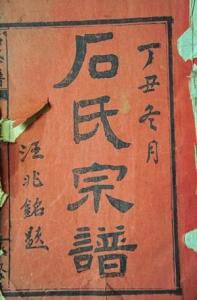 丁丑冬月
石氏宗譜
汪兆銘題